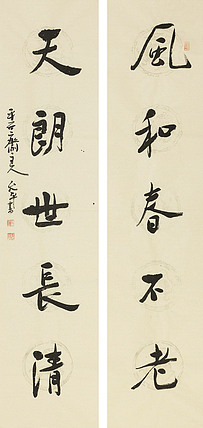 風和春不老
天朗世長清